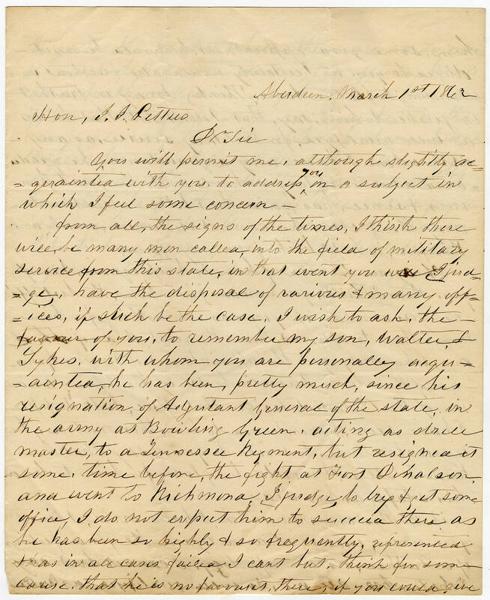 Aberdeen, March 1st 1862
Hon, J. J. Pettus
Dr Sir
You will permit me, although slightly ac-
-quainted with you to address you on a subject in
which I feel some concern -
from all, the signs of the times, I think there
will, be many men called, into the field of military
service from this state, in that event you will I jud-
-ge, have the disposal of various & many off-
-ices, if such be the case, I wish to ask, the
favour of you, to remember my son, Walter, &
Sykes, with whom you are personally acqu-
-ainted, he has been, pretty much, since his
resignation, of Adjutant General of the state, in
the army at Bowling Green, acting as drill
master, to a Tennessee Regiment, but resigned it
some, time before, the fight at Fort Donalson,
and went to Richmond, I judge, to try & get some
office, I do not expect him to succed there, as
he has been so highly & so frequently, represented
& as in all cases failed I cant but, think for some
cause, that he is no favourit, there, if you could, give